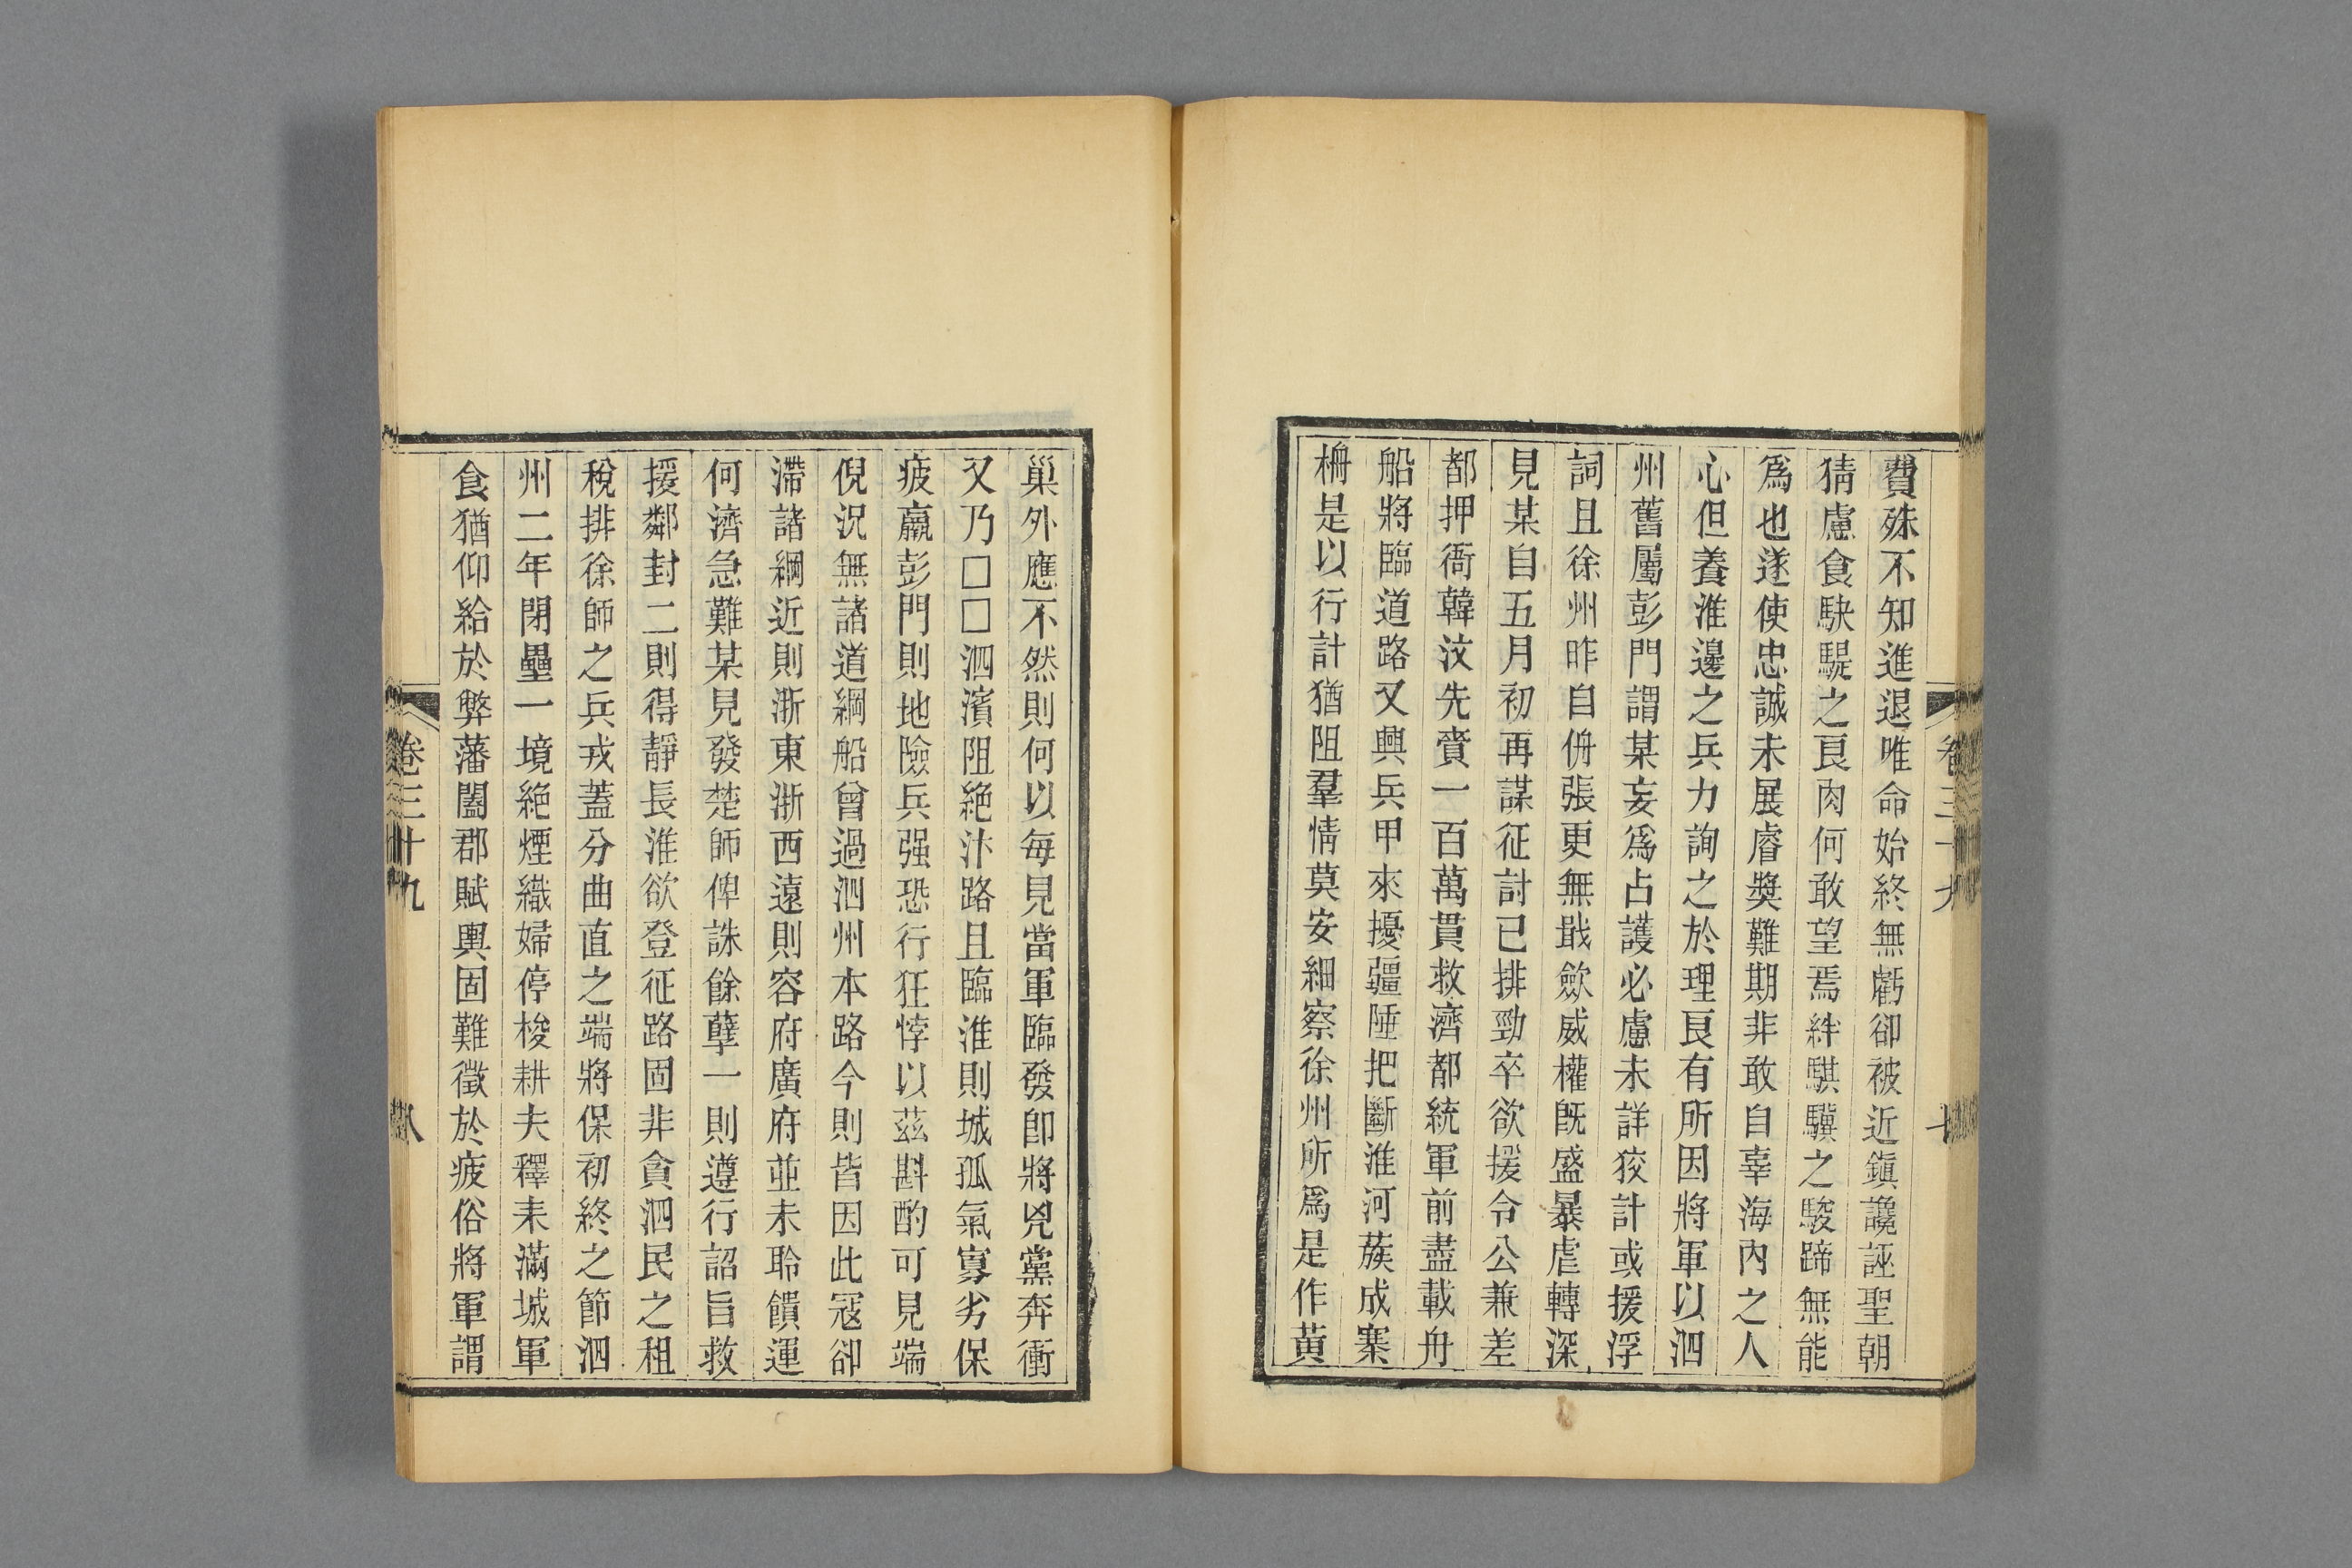 費殊不知進退唯命始終無虧卻被近鎭讒誣聖朝
猜慮食駃騠之良肉何敢望焉絆騏驥之駿蹄無能
爲也遂使忠誠未展睿獎難期非敢自辜海內之人
心但養淮邊之兵力詢之於理良有所因將軍以泗
州舊屬彭門謂某妄爲占護必慮未詳狡計或援浮
詞且徐州昨自侜張更無戢歛威權旣盛暴虐轉深
見某自五月初再謀征討已排勁卒欲援令公兼差
都押衙韓汶先賫一百萬貫救濟都統軍前盡載舟
船將臨道路又興兵甲來擾疆陲把斷淮河蔟成寨
柵是以行計猶阻羣情莫安細察徐州所爲是作黃
卷三十九
巢外應不然則何以每見當軍臨發卽將兇黨奔衝
又乃□□泗濱阻絶汴路且臨淮則城孤氣寡劣保
疲羸彭門則地險兵强恐行狂悖以茲斟酌可見端
倪況無諸道綱船曾過泗州本路今則皆因此寇卻
滯諸綱近則浙東浙西遠則容府廣府並未聆饋運
何濟急難某見發楚師俾誅餘孽一則遵行詔旨救
援鄰封二則得靜長淮欲登征路固非貪泗民之租
稅排徐師之兵戎蓋分曲直之端將保初終之節泗
州二年閉壘一境絶煙織婦停梭耕夫釋耒滿城軍
食猶仰給於弊藩闔郡賦輿固難徵於疲俗將軍謂
卷三十九
八